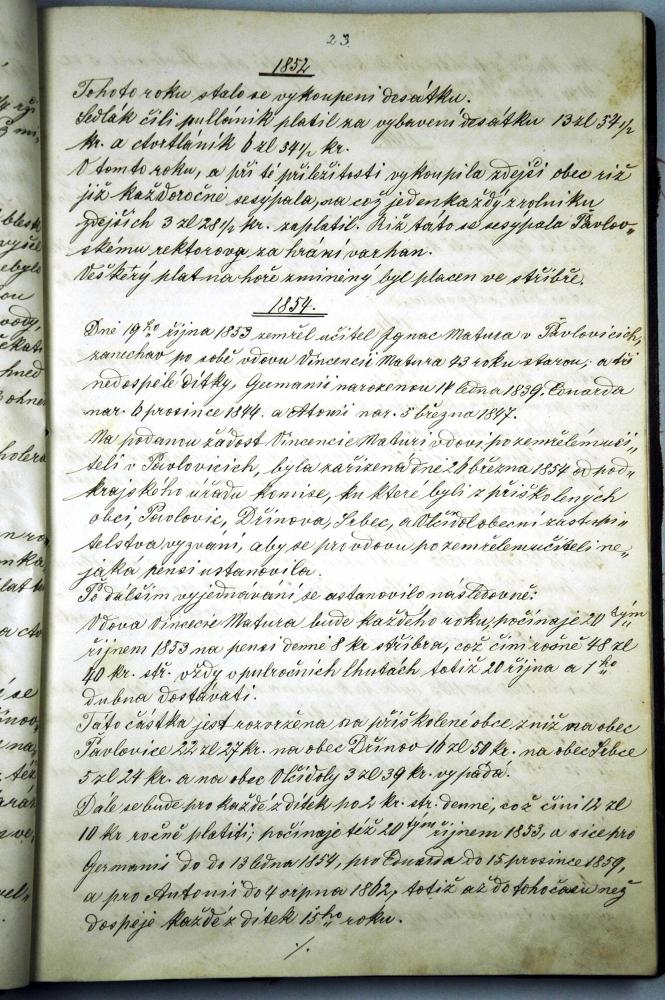 23.
1852
Tohoto roku stalo se vykoupení desátku.
Sedlák čili pullánik platil za vybavení desátku 13 zl 54½
kr. a čtvrtláník 6 zl 54½ kr.
O tomto roku, a při té příležitosti vykoupila zdejší obec též
již každoročně sesýpala, na což jedenkaždý z rolníku
zdejších 3 zl 28½ kr. zaplatil. Též táto se sesýpala Pavlov-
skému rektorovy za hrání varhan.
Veškerý plat na hoře zmíněný byl placen ve stříbře.
1854.
Dne 19ho října 1853 zemřel učitel Ignac Matura v Pavlovicích,
zanechav po sobě vdovu Vincencii Matura 43 roku starou, a tři
nedospělé dítky, Germanii narozenou 14 ledna 1839, Eduarda
nar. 6 prosince 1844. a nar. 5 března 1847.
Na podanou žádost Vincencie Maturi vdovi po zemřelém uči-
teli v Pavlovicích, byla zařízena dne 26 března 1854 od pod-
krajského úřadu komise, ku které byli z přiškolených
obcí, Pavlovic, Dřínova, Srbec, a Vlčídol obecní zástupi-
telstva vyzváni, aby se pro vdovu po zemřelem učiteli ně-
jaká pensi ustanovila.
Po dalším vyjednávání se ustanovilo následovně:
Vdova Vincecie Matura bude každého roku, počínaje 20tým
říjnem 1853 na pensi denně 8 kr stříbra, což činí rošně 48 zl
40 kr. stř. vždy v pulročních lhutách totiž 20 října a 1ho
dubna dostávati.
Tato částka jest rozvržena na přiškolené obce zniž na obec
Pavlovice 22 zl 27 kr. na obec Dřínov 16 zl 50 kr. na obec Srbce
5 zl 24 kr. a na obec Vlčidoly 3 zl 39 kr. vypadá.
Dále se bude pro každé z dítek po 2 kr. str. denně, což činí 12 zl
10 kr ročně platiti; počínaje též 20tým říjnem 1853, a sice pro
Germanii do do 13 ledna 1854, pro Eduarda do 15 prosince 1859,
a pro Antonii do 4 srpna 1862, totiž až do toho času než
dospěje každé z dítek 15ho roku.
./.